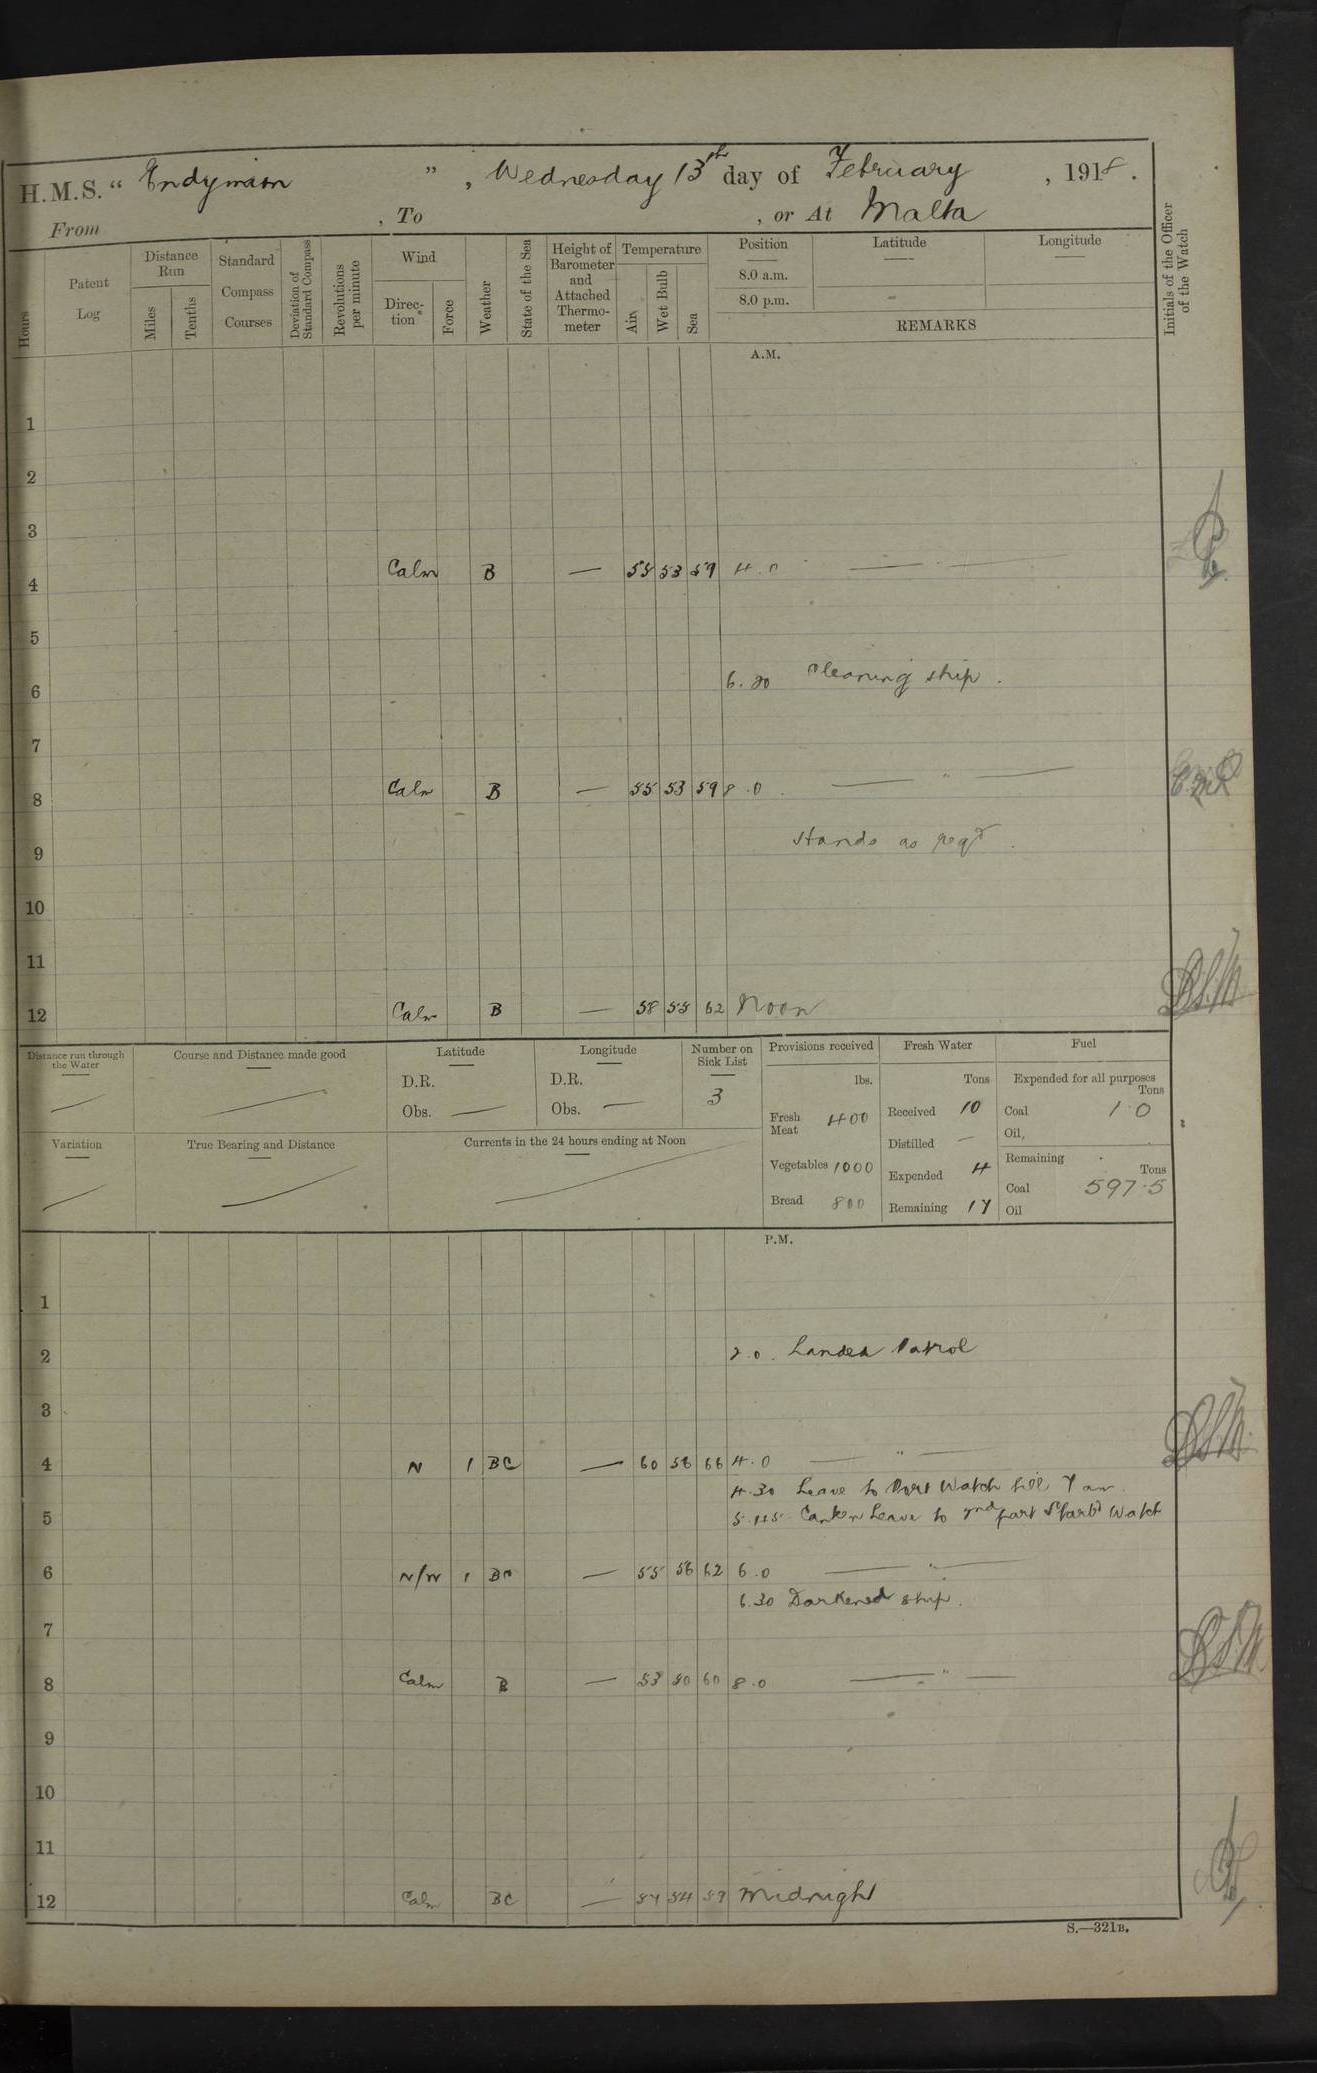 H.M.S. “ Endymion ” , Wednesday 13th day of February , 1918 .
From , To , or At Malta
Hours
Patent Log
Distance Run
Miles
Tenths
Standard Compass Courses
Deviation of Standard Compass
Revolutions per minute
Wind
Direction
Force
Weather
State of the Sea
Height of Barometer and Attached Thermometer
Temperature
Air
Wet Bulb
Sea
Position Latitude Longitude
8.0 a.m.
8.0 p.m.
REMARKS
Initials of the Officer of the Watch
A.M.
1
2
3
4 Calm B — 55 53 59 4.0 — —
5
6 6.30 Cleaning ship .
7
8 Calm B — 55 53 59 8.0 — " —
9 Hands as reqd .
10
11
12 Calm B — 58 55 62 Noon
Distance run through the Water
Course and Distance made good
Latitude
D.R.
Obs. —
Longitude
D.R.
Obs. —
Number on Sick List
3
Provisions received
lbs.
Fresh Meat 400
Vegetables 1000
Bread 800
Fresh Water
Tons
Received 10
Distilled —
Expended 4
Remaining 17
Fuel
Expended for all purposes
Tons
Coal 10
Oil,
Remaining
Tons
Coal 597.5
Oil
Variation
True Bearing and Distance
Currents in the 24 hours ending at Noon
P.M.
1
2 2.0. Landed Patrol
3
4 N 1 BC — 60 56 66 4.0 — " —
4.30 Leave to Port Watch till 7 am.
5 5.45 Canteen Leave to 2nd part Starbd Watch
6 N/W 1 BC — 55 56 62 6.0 — " —
6.30 Darkened ship.
7
8 Calm B — 53 50 60 8.0 — " —
9
10
11
12 Calm BC — 54 59 Midnight
S.—321B.